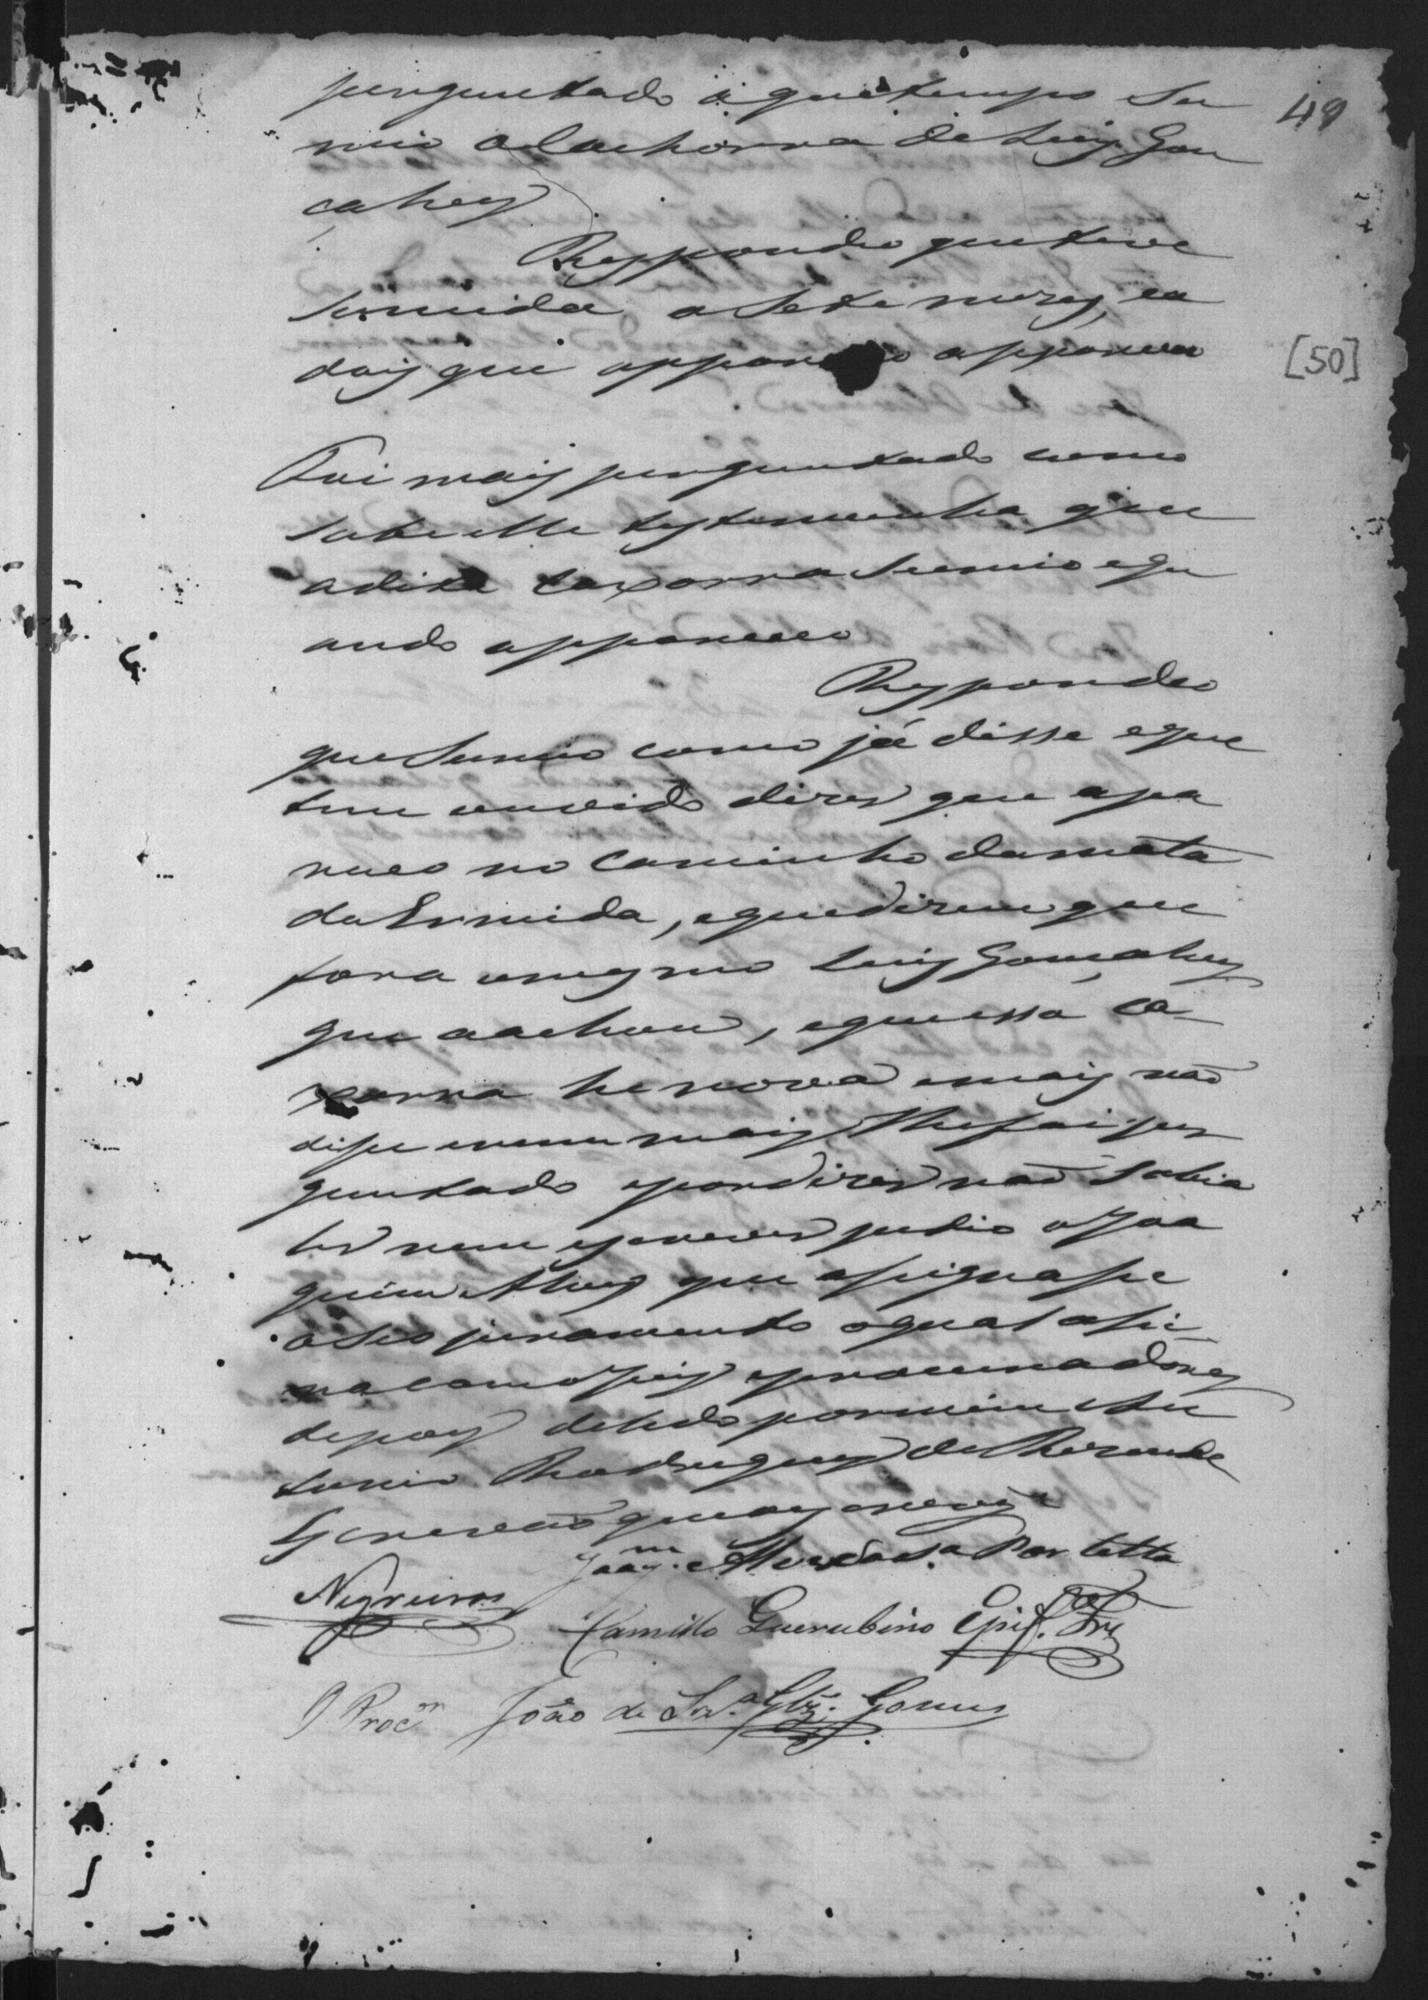 49
perguntado a que tempo su
mio a Cachorra de Luiz Gon
çalves
Respondeo que tive
sumida a Sete mezes, ea
dois que appareceo appareceo
[50]
Foi mais perguntado como
sabe elle testemunha que
a dita Caxorra Sumio e qu
ando appareceo
Respondeo
que Sumio como já disse e que
tem ouvido dizer que apa
receo no Caminho da mata
da Ermida, e que dizem que
fora o mesmo Luiz Gonçalves
que a achou, e que essa Ca-
xorra he nova e mais não
dise e nem mais lhe foi per
guntado e por dizer não Sabia
ler nem escrever pedio a Joa
quim Alves que asignase
o seo juramento o qual asi-
na com o Juiz e procuradores
depois de lido por mim An
tonio Rodrigues de Rezende
Escrivão que o escrevy
Joaqm. Alves da Sa. Portella
Negreiros
Camillo Querubino
O Procor. João de Gomes